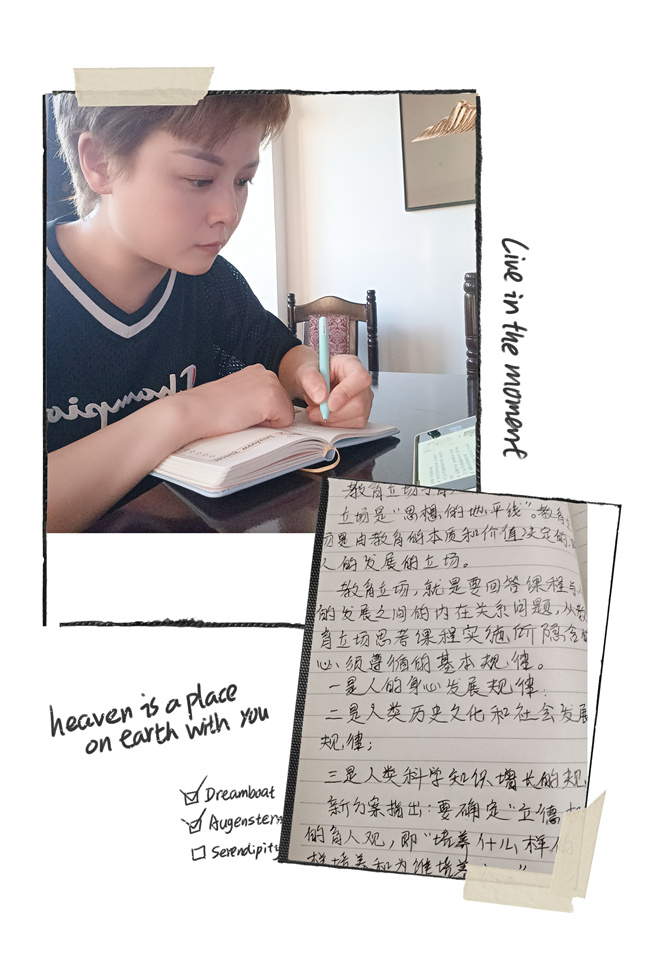 Live in the moment
教育立场
立场是“思想的地平线”。教育立
场是由教育的本质和价值决定的,
人的发展的立场。
教育立场,就是要回答课程与人
的发展之间的内在关系问题,从教
育立场思考课程实施所隐含的
心须遵循的基本规律。
一是人的身心发展规律;
二是人类历史文化和社会发展
规律;
三是人类科学知识增长的规
新方案指出:要确定“立德树
的育人观,即“培养什么样的
样培养和为谁培养
heaven is a place
on earth with you
Dreamboat
Augenstern
Serendipity